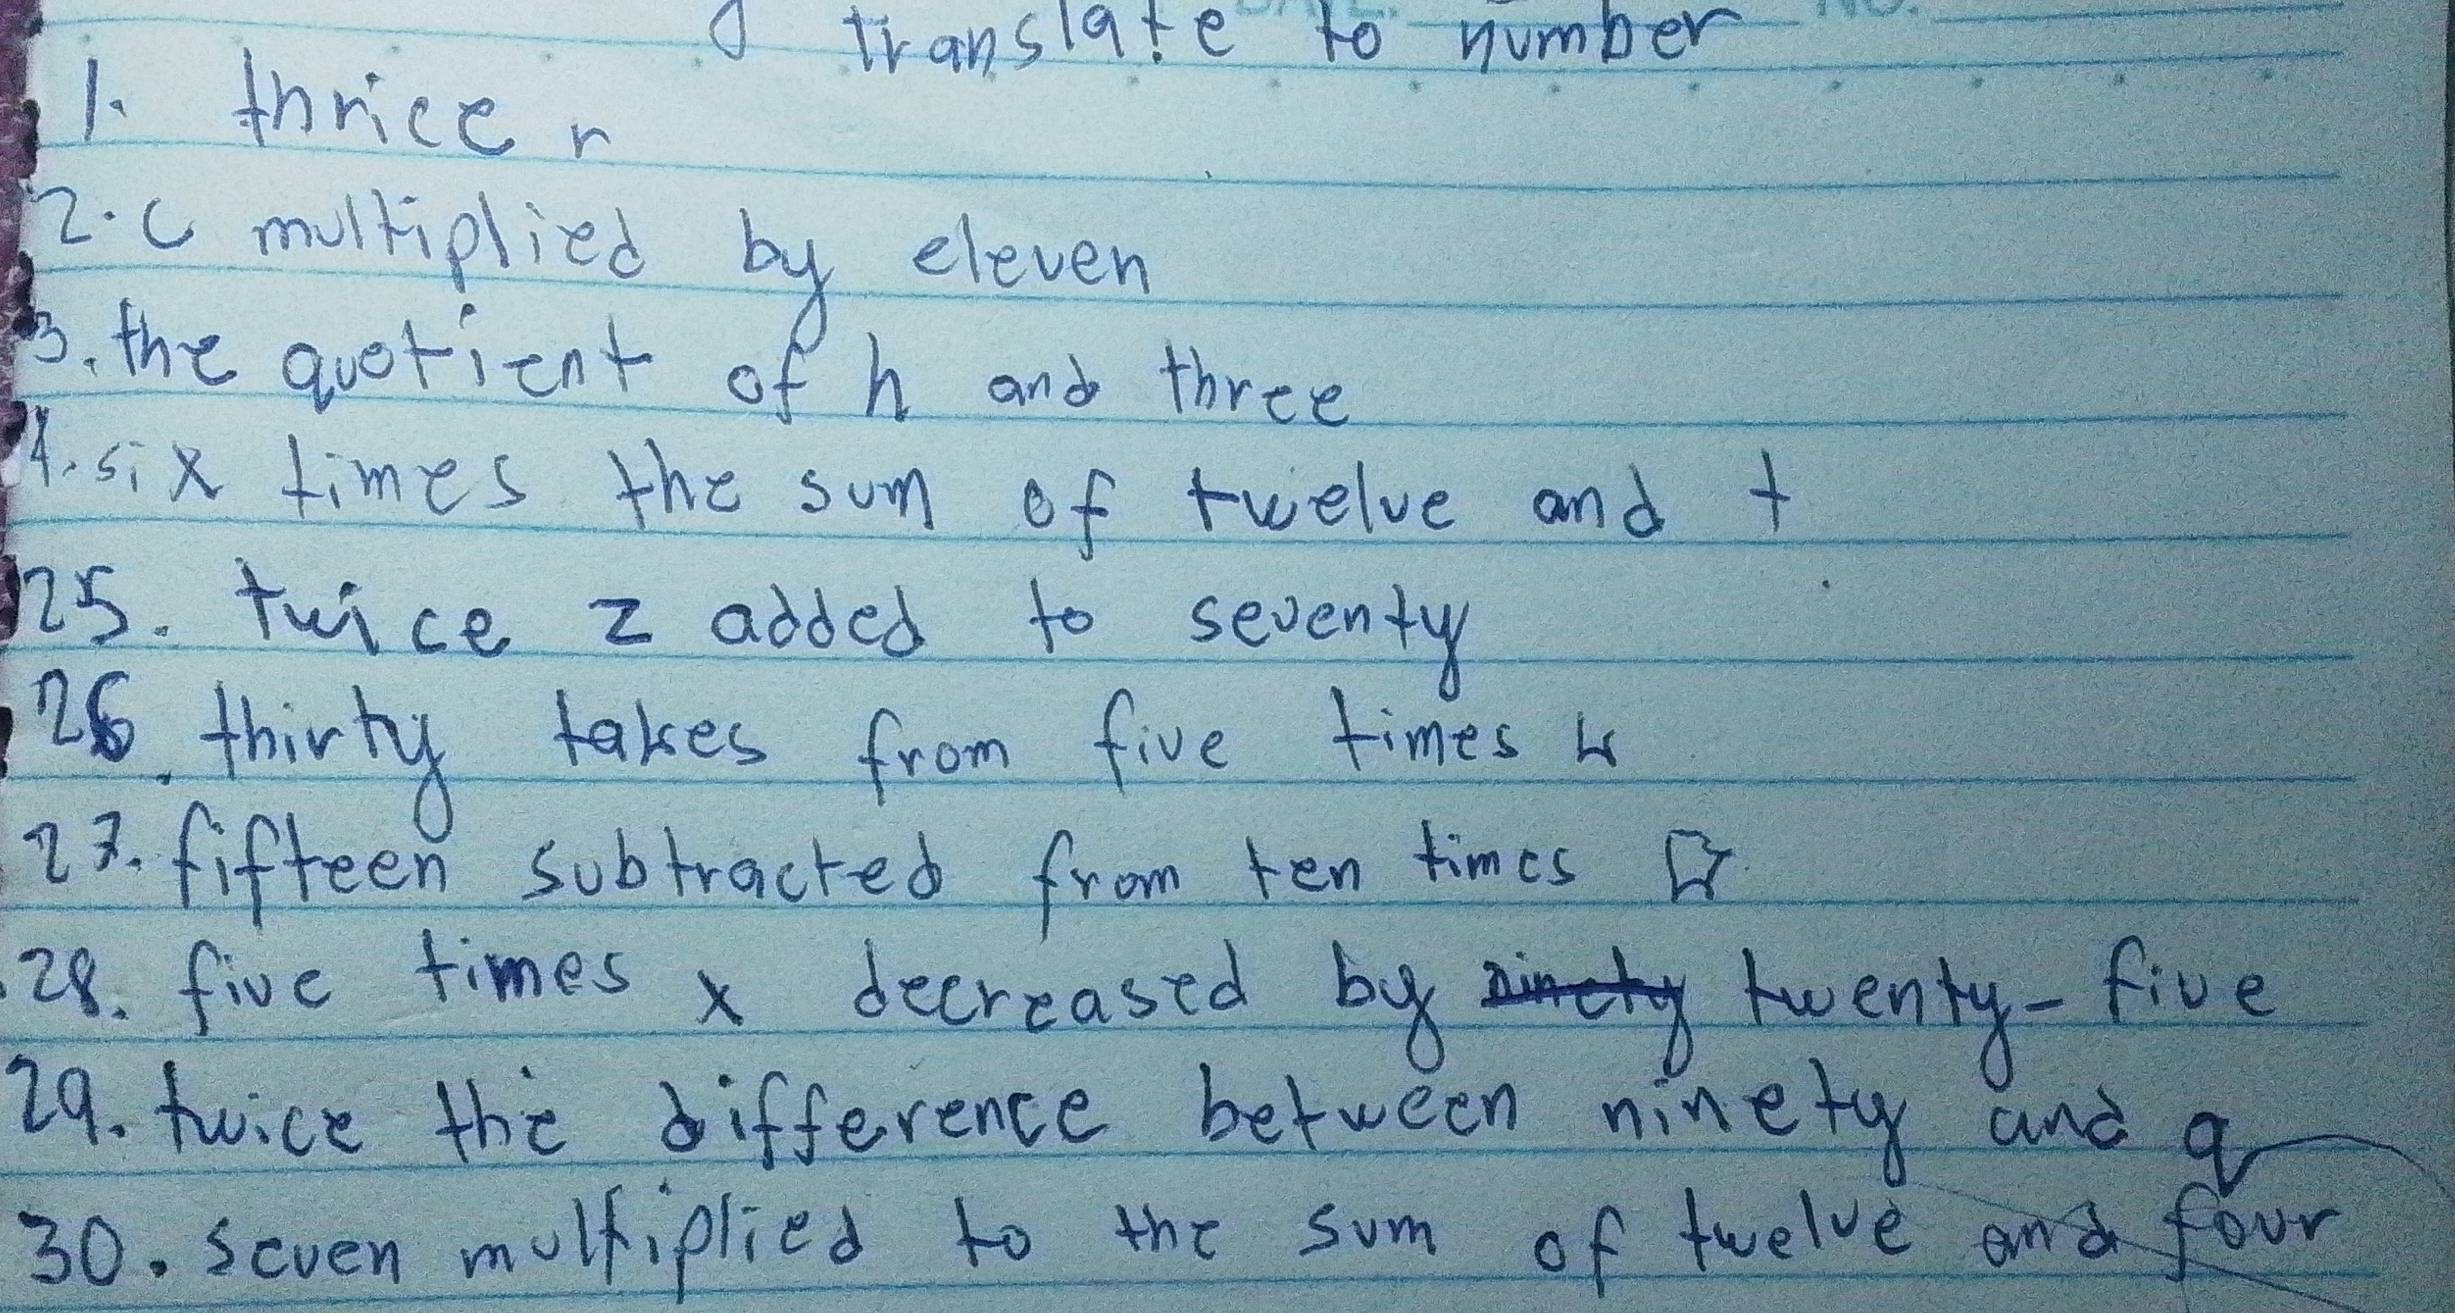 translate to number
1. thrice r
2. c multiplied by eleven
3. the quotient of h and three
4. six times the sum of twelve and t
25. twice z added to seventy
26. thirty takes from five times
27. fifteen subtracted from ten times
28. five times x decreased by ninety twenty-five
29. twice the difference between ninety and q
30. seven multiplied to the sum of twelve and four